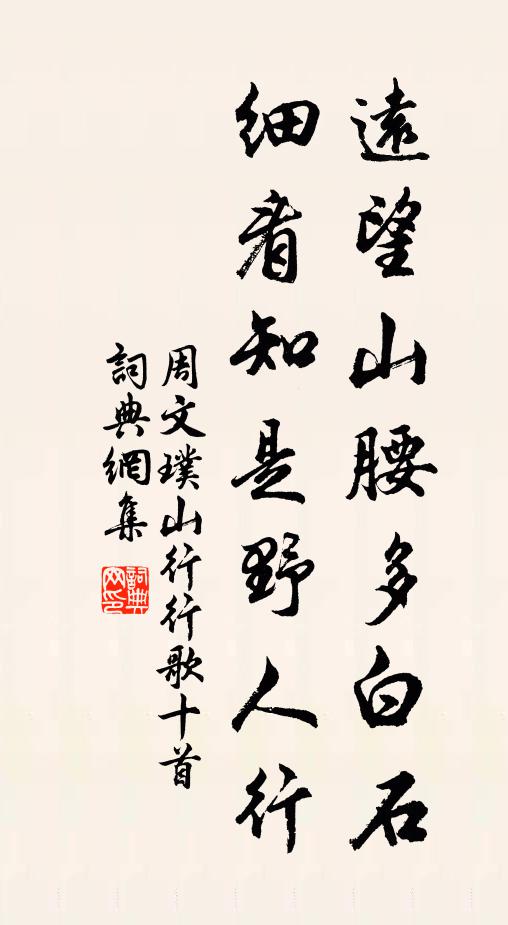 遠望山腰多白石
細看知是野人行
周文璞山行行歌十首
詞典網集
詞典網印